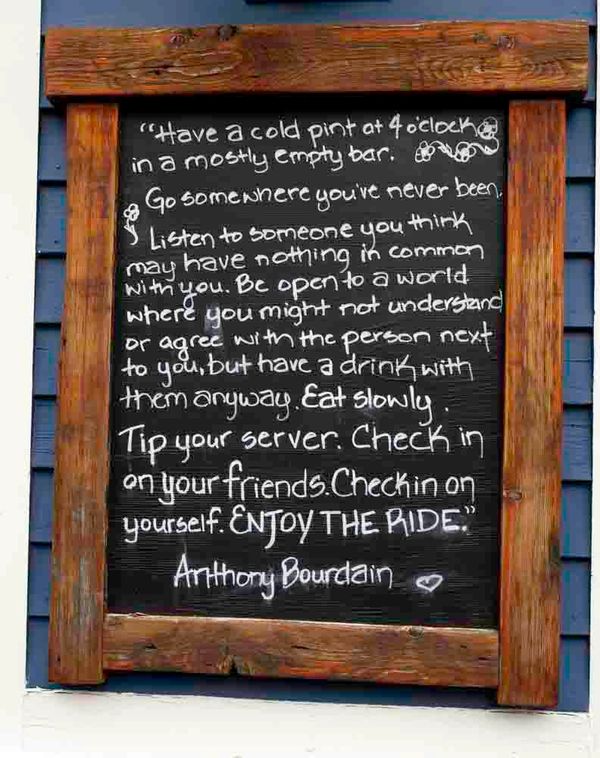 "Have a cold pint at 4 o'clock
in a mostly empty bar.
Go somewhere you've never been.
Listen to someone you think
may have nothing in common
with you. Be open to a world
where you might not understand
or agree with the person next
to you, but have a drink with
them anyway. Eat slowly.
Tip your server. Check in
on your friends. Check in on
yourself. ENJOY THE RIDE."
Anthony Bourdain